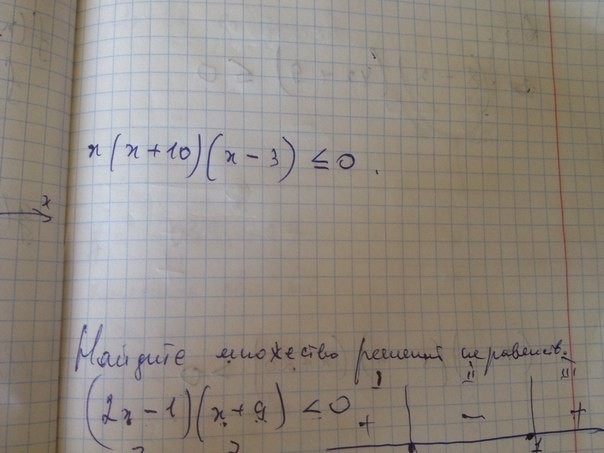 x(x+10)(x-3) ≤ 0.
x
Найдите множество решений неравенств.
I II III
(2x-1)(x+9) < 0 + - +